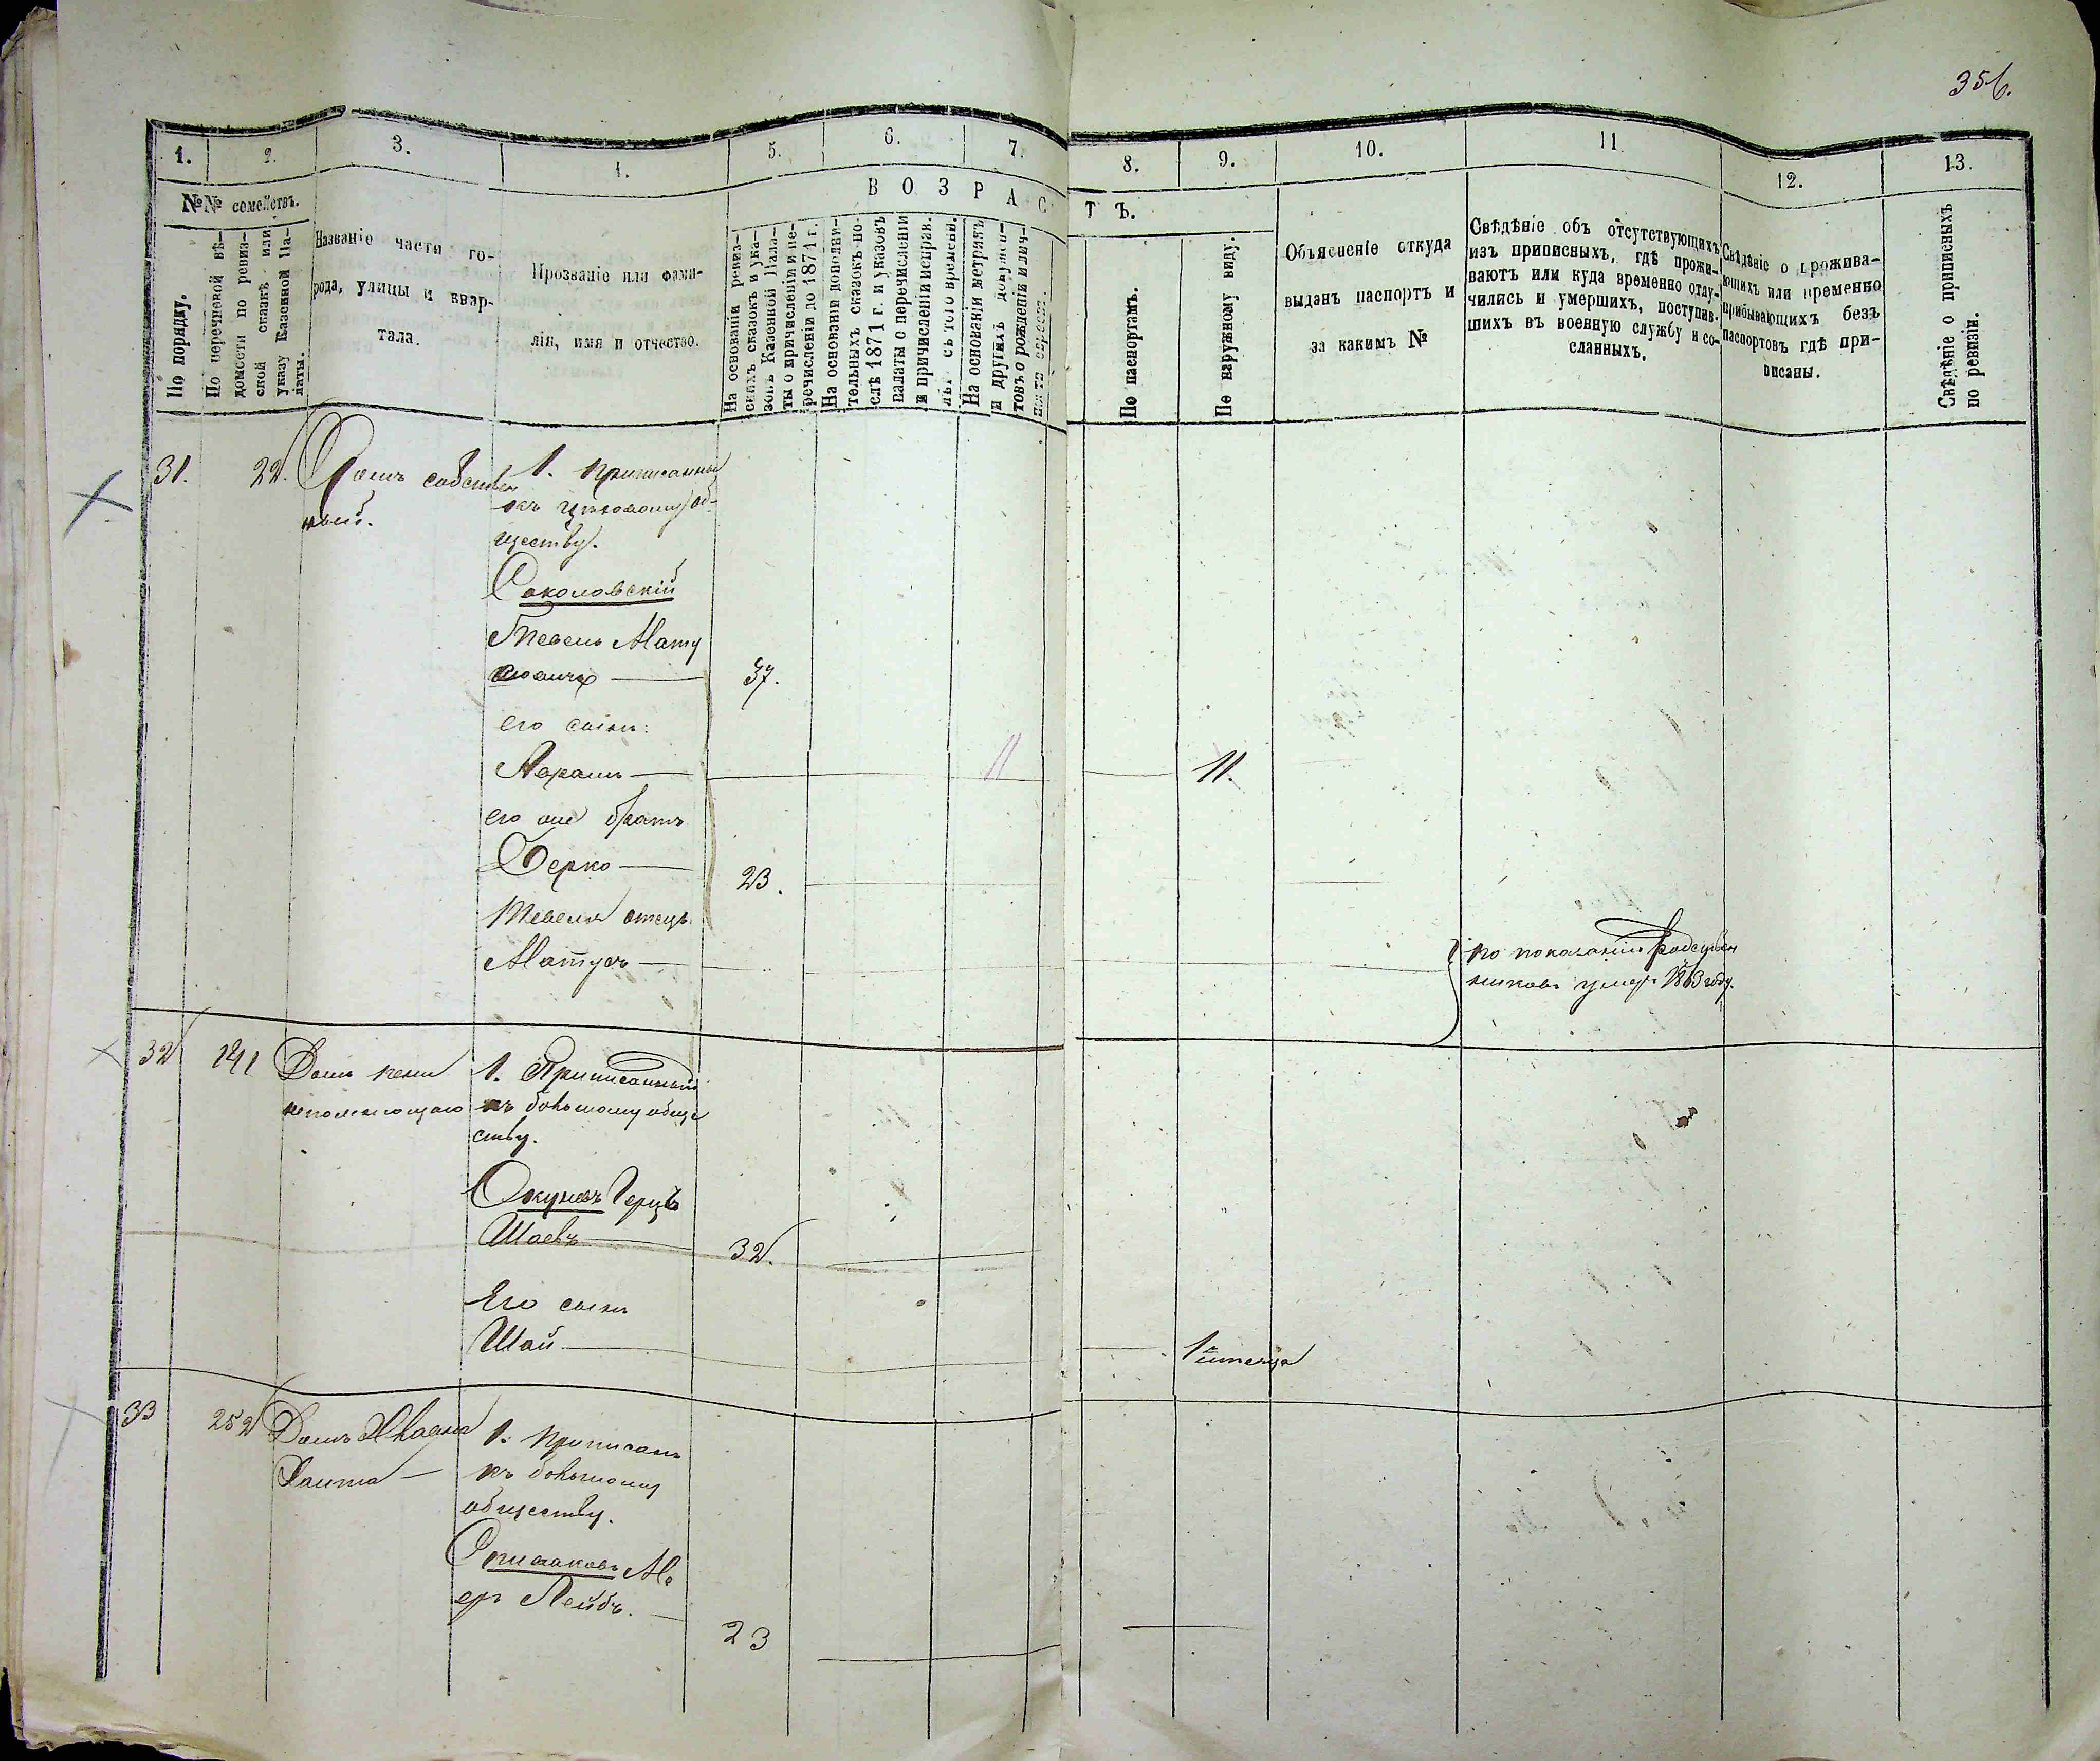 356.
1.
2.
3.
4.
5.
6.
7.
8.
9.
10.
11.
12.
13.
№№ семействъ.
По порядку.
По перечневой вѣ-
домости по ревиз-
ской сказкѣ или
указу Казенной Па-
латы.
Названіе части го-
рода, улицы и квар-
тала.
Прозваніе или фами-
лія, имя и отчество.
ВОЗРАСТЪ.
На основаніи ревиз-
скихъ сказокъ и ука-
зовъ Казенной Пала-
ты о причисленіи и пе-
речисленіи до 1871 г.
На основаніи дополни-
тельныхъ сказокъ по-
слѣ 1871 г. и указовъ
палаты о перечисленіи
и причисленіи исправ.
съ того времени.
На основаніи метрикъ
и другихъ докумен-
товъ о рожденіи
По паспортамъ.
По наружному виду.
Объясненіе откуда
выданъ паспортъ и
за какимъ №
Свѣдѣніе объ отсутствующихъ
изъ приписныхъ, гдѣ прожи-
ваютъ или куда временно отлу-
чились и умершихъ, поступив-
шихъ въ военную службу и со-
сланныхъ.
Свѣдѣніе о прожива-
ющихъ или временно
прибывающихъ безъ
паспортовъ гдѣ при-
писаны.
Свѣдѣніе о приписныхъ
по ревизіи.
31. 22. Домъ собствен
ный.
1. Приписанные
къ цеховому об-
ществу.
Соколовскій
Тевель Мату
совичъ 37.
его сынъ:
Абрамъ 11 11.
его же братъ
Берко 23.
Тевеля отецъ
Матусъ
по показанію родствен
никовъ умеръ 1863 году.
32 241 Домъ
1. Приписанный
къ большому обще
ству.
Окуневъ Герцъ
Шаевъ 32.
Его сынъ
Шай 1
33 252 Домъ
Хаита
1. Приписанъ
къ большому
обществу.
Спиваковъ Ме
еръ Лейбъ. 23